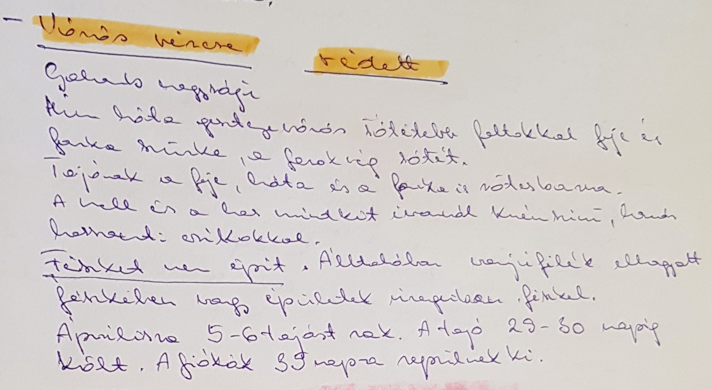 - Vörös vércse védett
Galamb nagyságú
Hím háta gesztenyevörös sötétebb foltokkal feje és
farka szürke, a farokvég sötét.
Tojónak a feje, háta és a farka is vörösbarna.
A mell és a has mindkét ivarnál krémszínű, barna
hosszanti csíkokkal.
Fészket nem épít. Álltalában varjúfélék elhagyott
fészkében vagy épületek üregeiben fészkel.
Áprilisra 5-6 tojást rak. A tojó 29-30 napig
költ. A fiókák 39 napra repülnek ki.